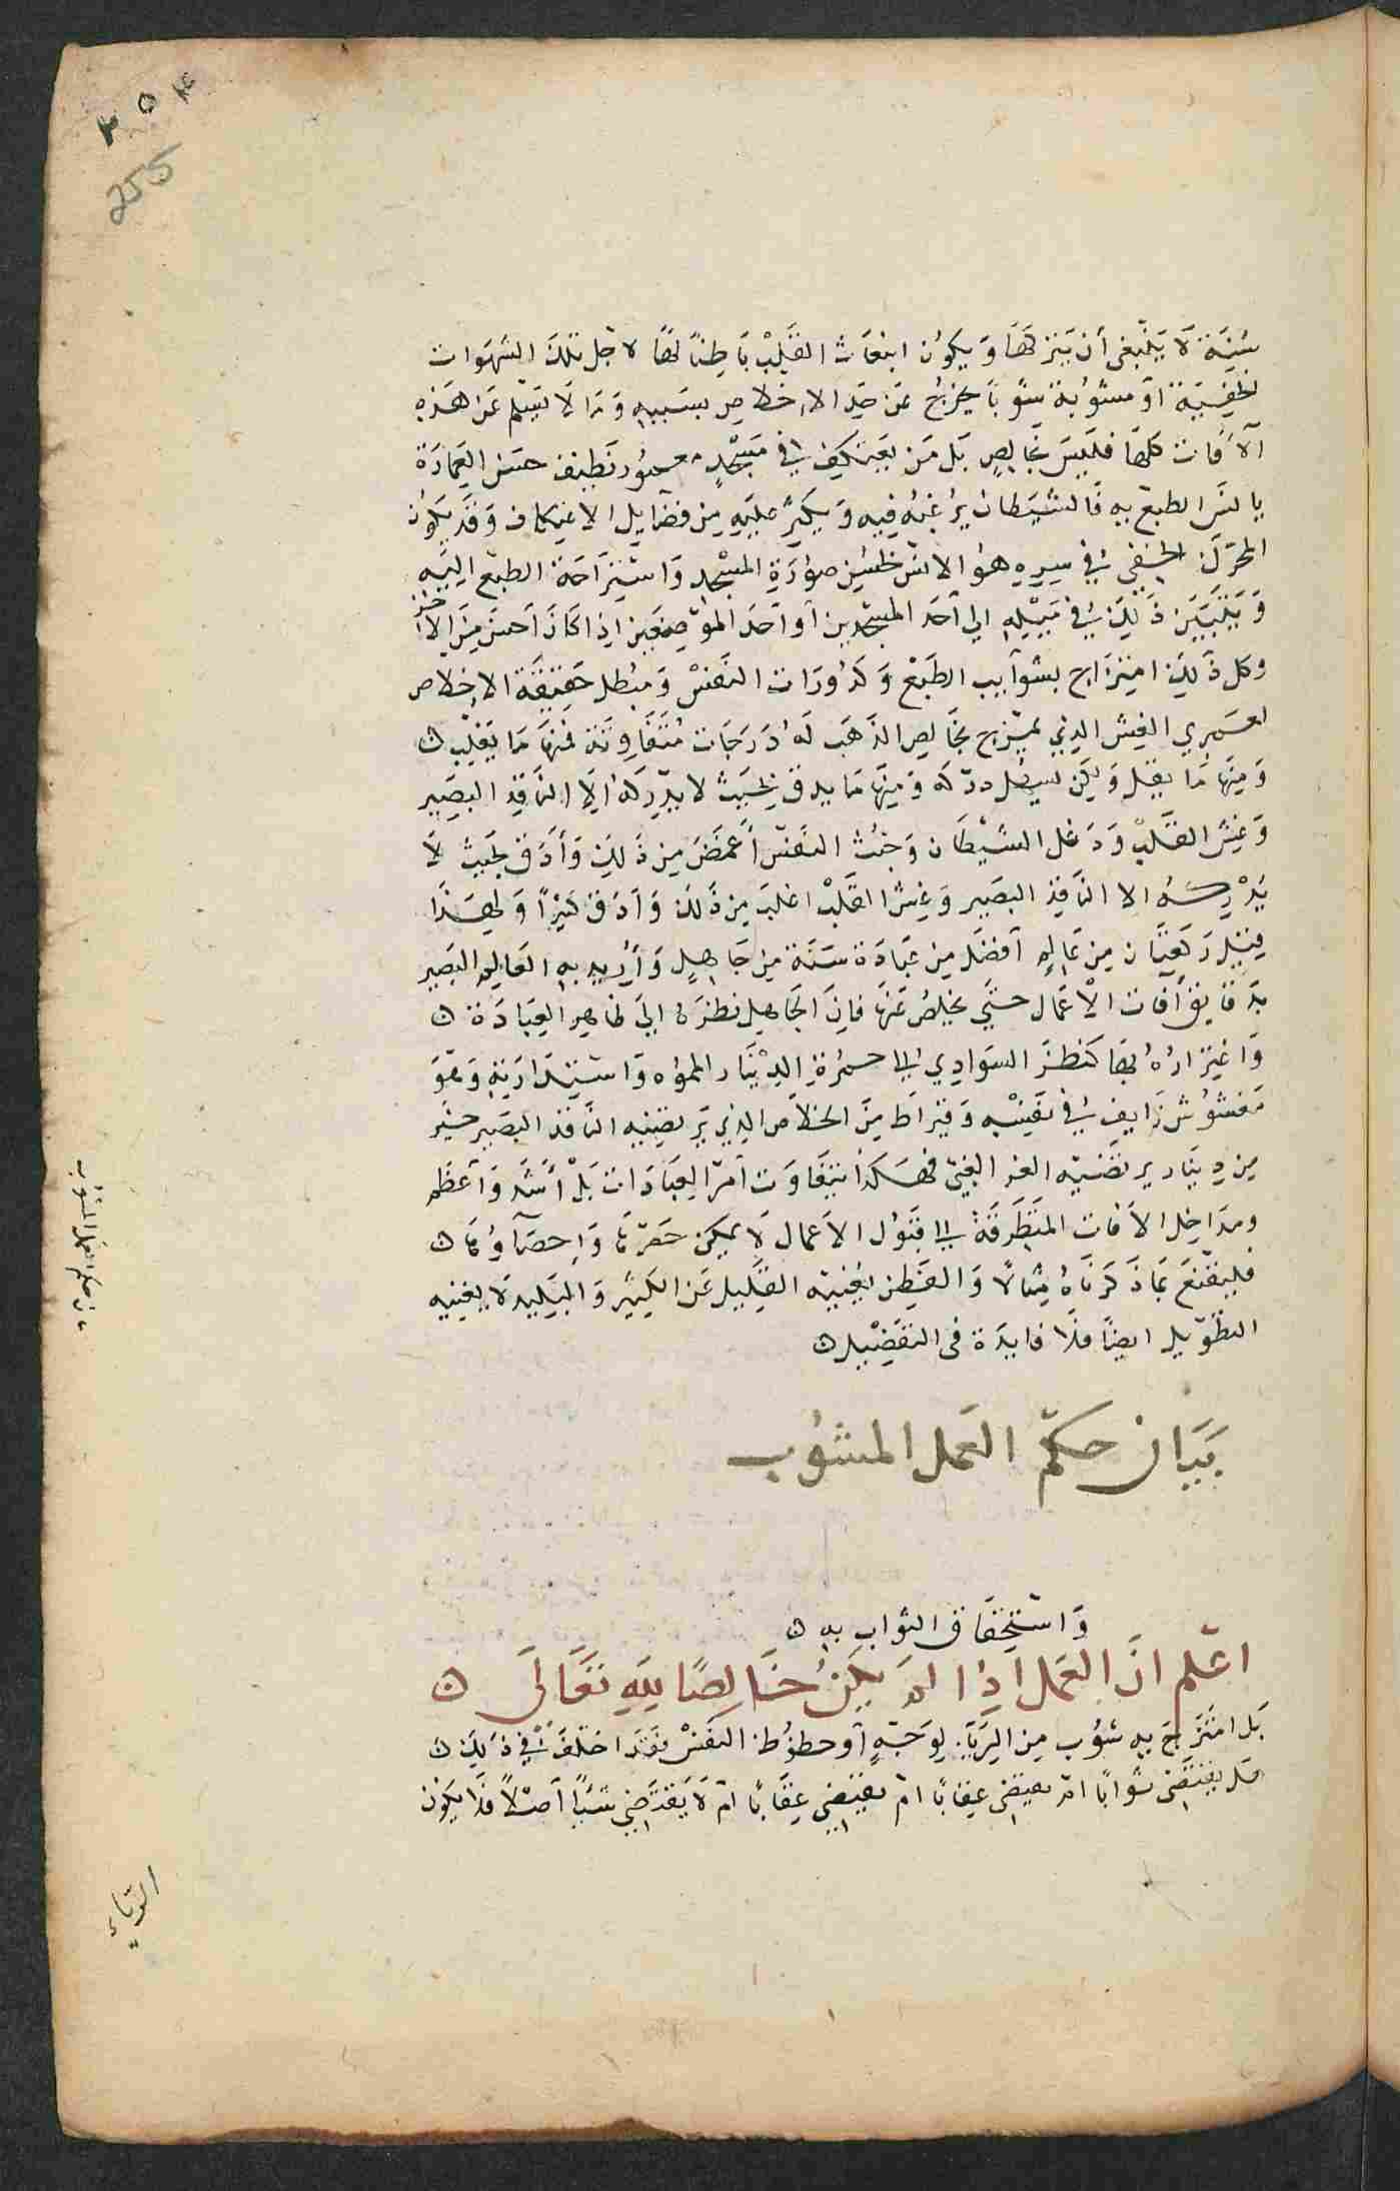 ٢٥٥
255
سُنَّة لَا يَنْبَغِى أَن يَتركَهَا وَيكوُن انبعَاث القَلْب بَاطِنًا لهَا لاجْل تلكَ الشهَوات
الخفِيَّة أَوْ مَشوُبة شَوْبًا يخرُج عَن حَدِ الاِخلاصِ بسَببِهِ وَمَا لَا يَسْلم عَن هَذِه
الآفات كلهَا فلَيسَ بخَالِصٍ بَل مَن يَعتكِف فِي مَسْجدٍ معمور نَظيف حسَن العِمَارَة
يانسُ الطبعْ بهِ فَالشيَطان يُرغِّبُه فِيه وَيكثِّر عَليهِ مِن فضَايل الاعتِكاف وَقَد يَكوُن
المحرّك الخفي فِي سِرِهِ هُوَ الانس بحُسْن صوُرَةِ المسْجد وَاستِرَاحَة الطبْع اليَهِ
وَيَتَبَيَّن ذَلِكَ فِي مَيْلِهِ الي أَحَد المسْجدين أَو أَحَد الموْضِعَين اِذا كَانَ أَحسَن مِنَ الآخر
وكل ذَلِكَ امتِزَاج بشوَآيب الطَبْع وَكدُورَات النفسْ وَمبُطل حَقِيقَة الاِخلاص
لعَمري الغِشّ الذِي يمْزج بخَالِص الذَهَب لَهُ دَرَجَات مُتَفَاوِتَة فمنهَا مَا يغْلِب ن
وَمِنهَا مَا يقل وَلكِن يسهُل دركَه وَمِنهَا مَا يدق بِحَيْث لا يدْرِكهُ اِلَا النَاقِد البَصِير
وَغِشّ القَلْب وَدَغل الشَيْطَان وَخبُث النفسْ أَغمَضَ مِن ذَلِك وَأَدَق بحَيث لَا
يدْرِكهُ الا الناقِد البصَير وَغِش القَلْب اغلبَ مِن ذَلِكَ وَأَدَق كثِيرًا وَلِهَذَا
قِيْل رَكعَتَان مِن عَالِم أَفضَل مِن عِبَادَة سَنَة مِن جَاهِلٍ وَأُرِيد بهِ العَالِم البَصِير
بدَقايق آفات الأعمَال حتىَ يخلصُ عَنهَا فاِن الجَاهِل نظرَه اِلي ظاهِر العِبَادَة ن
وَاغتِرَارهُ بهَا كنَظر السَوَادِي اِلي حمُرَةِ الدِيْنَار المموُه وَاستِدارَتِه وَهوَ
مَغشوُش زَايف فِي نفسْهِ وَقيراط مِنَ الخلاص الذِي يَرتَضِيه الناقد البصَير خَير
مِن دِينَار يرتضَيه الغر الغبِيّ فهَكذا يتفَاوَت أَمْر العِبَادَات بَلْ أَشَد وَأَعظَم
ومدَاخِل الآفات المتَطَرقَة الي فنوُن الأعمال لَا يمكِن حَصْرهَا وَاِحصَآوُهَا ن
فليَقْنَع بمَا ذَكرنَاهُ مِثالًا وَالفطِن يغْنِيه القَلِيل عَن الكثِير وَالبَلِيد لَا يغْنيِه
التطوْيل ايضًا فلَا فايدَة فى التفصِيل ن
بَيَان حكمْ العَمل المشوُب
وَاستْحِقَاق الثواب بهِ ن
اعْلم انَ العَمل اِذا لم يكن خَالِصًا لِلهِ تعَالىَ ن
بَل امتَزجَ بهِ شوُب مِن الرِيَاء لوَجْهٍ أَو حظوُظ النفسْ فقَد اختلِفَ فِي ذَلِك ن
هَل يَقتضِى ثوابًا امْ يقتضِى عِقابًا امْ يقتضِى عِقَابًا امْ لَا يَقتَضِي شيئًا أَصْلًا فلَا يكوُن
في حكم العمل المشوب
الرّياءِ